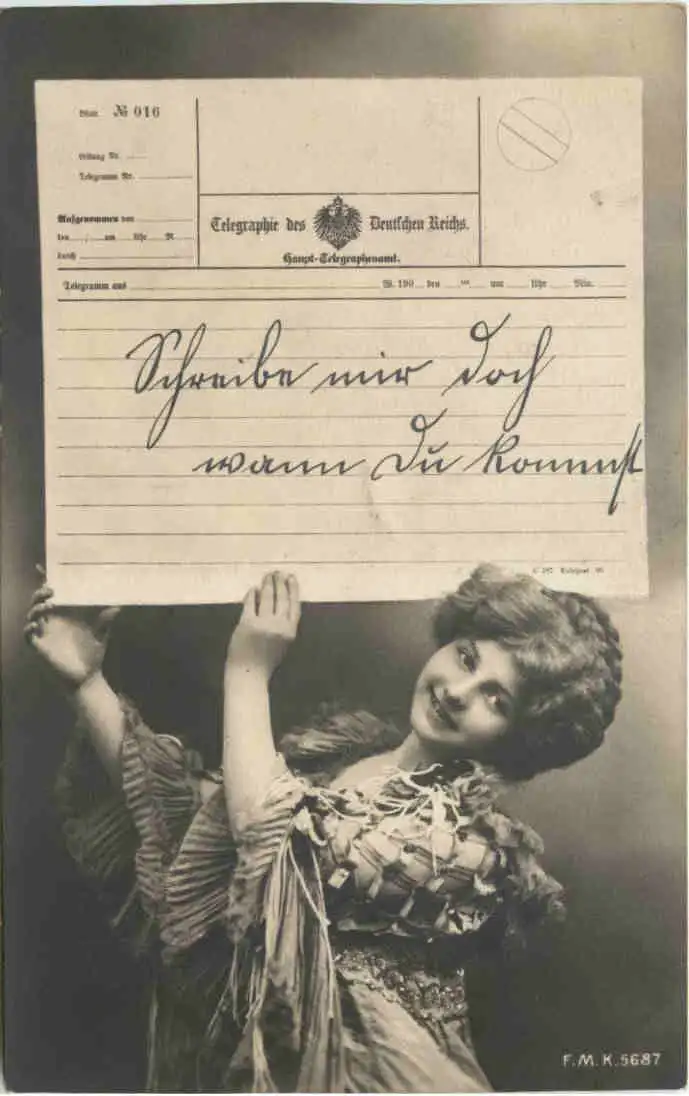 Blatt № 016
Leitung Nr.
Telegramm Nr.
Aufgenommen von
den um Uhr M.
durch
Telegraphie des Deutschen Reichs.
Haupt-Telegraphenamt.
Telegramm aus W. 190 den um Uhr Min.
Schreibe mir doch
wann Du kommst
F.M.K.5687